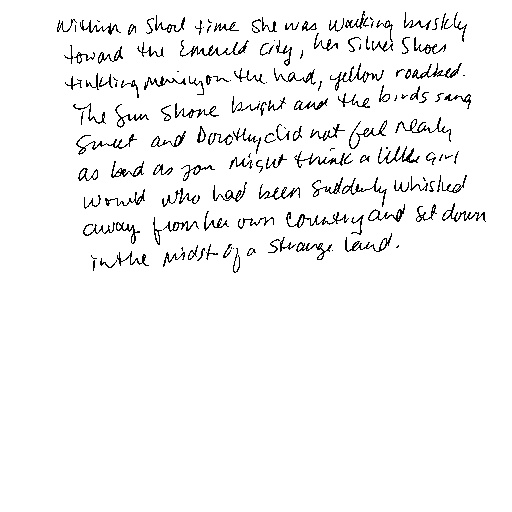 Within a short time she was walking briskly
toward the Emerald City, her Silver Shoes
tinkling merrily on the hard, yellow roadbed.
The sun shone bright and the birds sang
sweet and Dorothy did not feel nearly
as bad as you might think a little girl
would who had been suddenly whisked
away from her own country and set down
in the midst of a strange land.